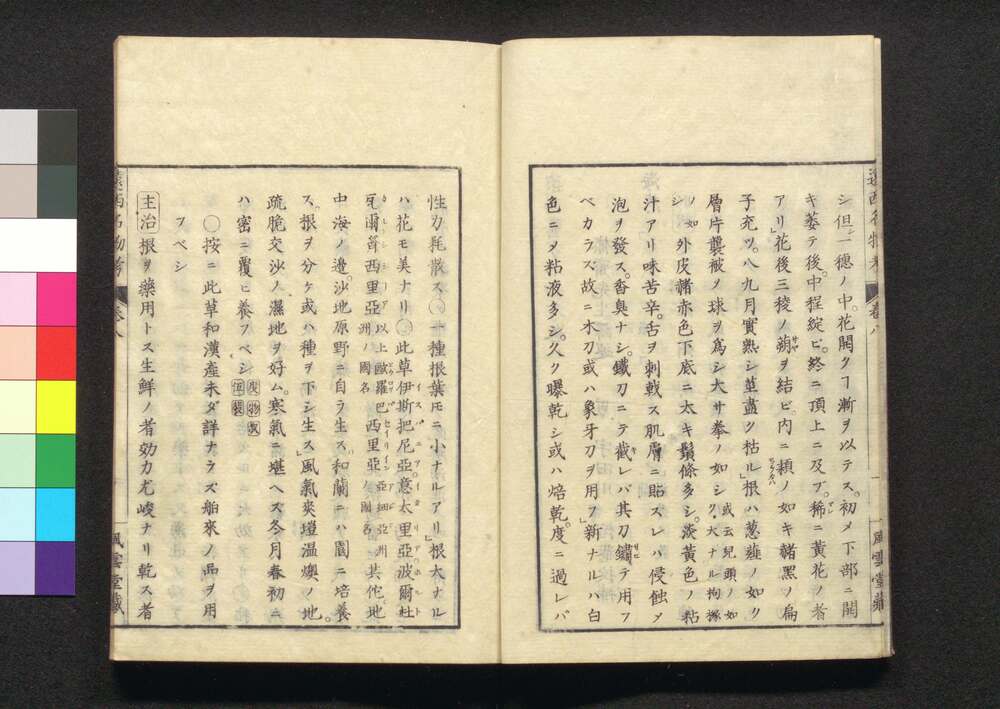 遠西名物考 卷八
シ但一穗ノ中。花開クヿ漸ヲ以テス。初メ下部ニ開
キ萎テ後。中程綻ビ。終ニ頂上ニ及ブ。稀ニ黄花ノ者
アリ」花後三稜ノ蒴ヲ結ビ。内ニ纇ノ如キ赭黑ノ扁
子充ツ。八九月實熟シ莖盡ク枯ル」根ハ葱薤ノ如ク
層片襲被ノ球ヲ爲シ大サ拳ノ如シ 或云兒頭ノ如ク。大ナル拘櫞
ノ如シ 外皮赭赤色下底ニ太キ鬚條多シ。淡黄色ノ粘
汁アリ味苦辛。舌ヲ刺戟ス肌膚ニ貼スレバ侵蝕メ
泡ヲ發ス。香臭ナシ。鐵刀ニテ截レバ其刀鏽テ用フ
ベカラズ。故ニ木刀或ハ象牙刀ヲ用フ」新ナルハ白
色ニメ粘液多シ。久ク曝乾シ或ハ焙乾度ニ過レバ
風雲堂藏
性力耗散ス○一種根葉モニ小ナルアリ」根大ナル
ハ花モ美ナリ○此草伊斯把尼亞。意太里亞波爾杜
瓦爾 西里亞 以上歐羅巴洲ノ國名 西里亞 亞細亞洲ノ國名 其佗地
中海ノ邊。沙地原野ニ自ラ生ス」和蘭ニハ園ニ培養
ス。根ヲ分ケ或ハ種ヲ下シ生ス」風氣爽塏温燠ノ地。
疏脆交沙ノ濕地ヲ好ム。寒氣ニ堪ヘズ冬月春初ニ
ハ密ニ覆ヒ養フベシ
○按ニ此草和漢產未ダ詳ナラズ舶來ノ品ヲ用
フベシ
主治 根ヲ藥用トス生鮮ノ者効力尤峻ナリ乾ス者
遠西名物考 卷八
風雲堂藏